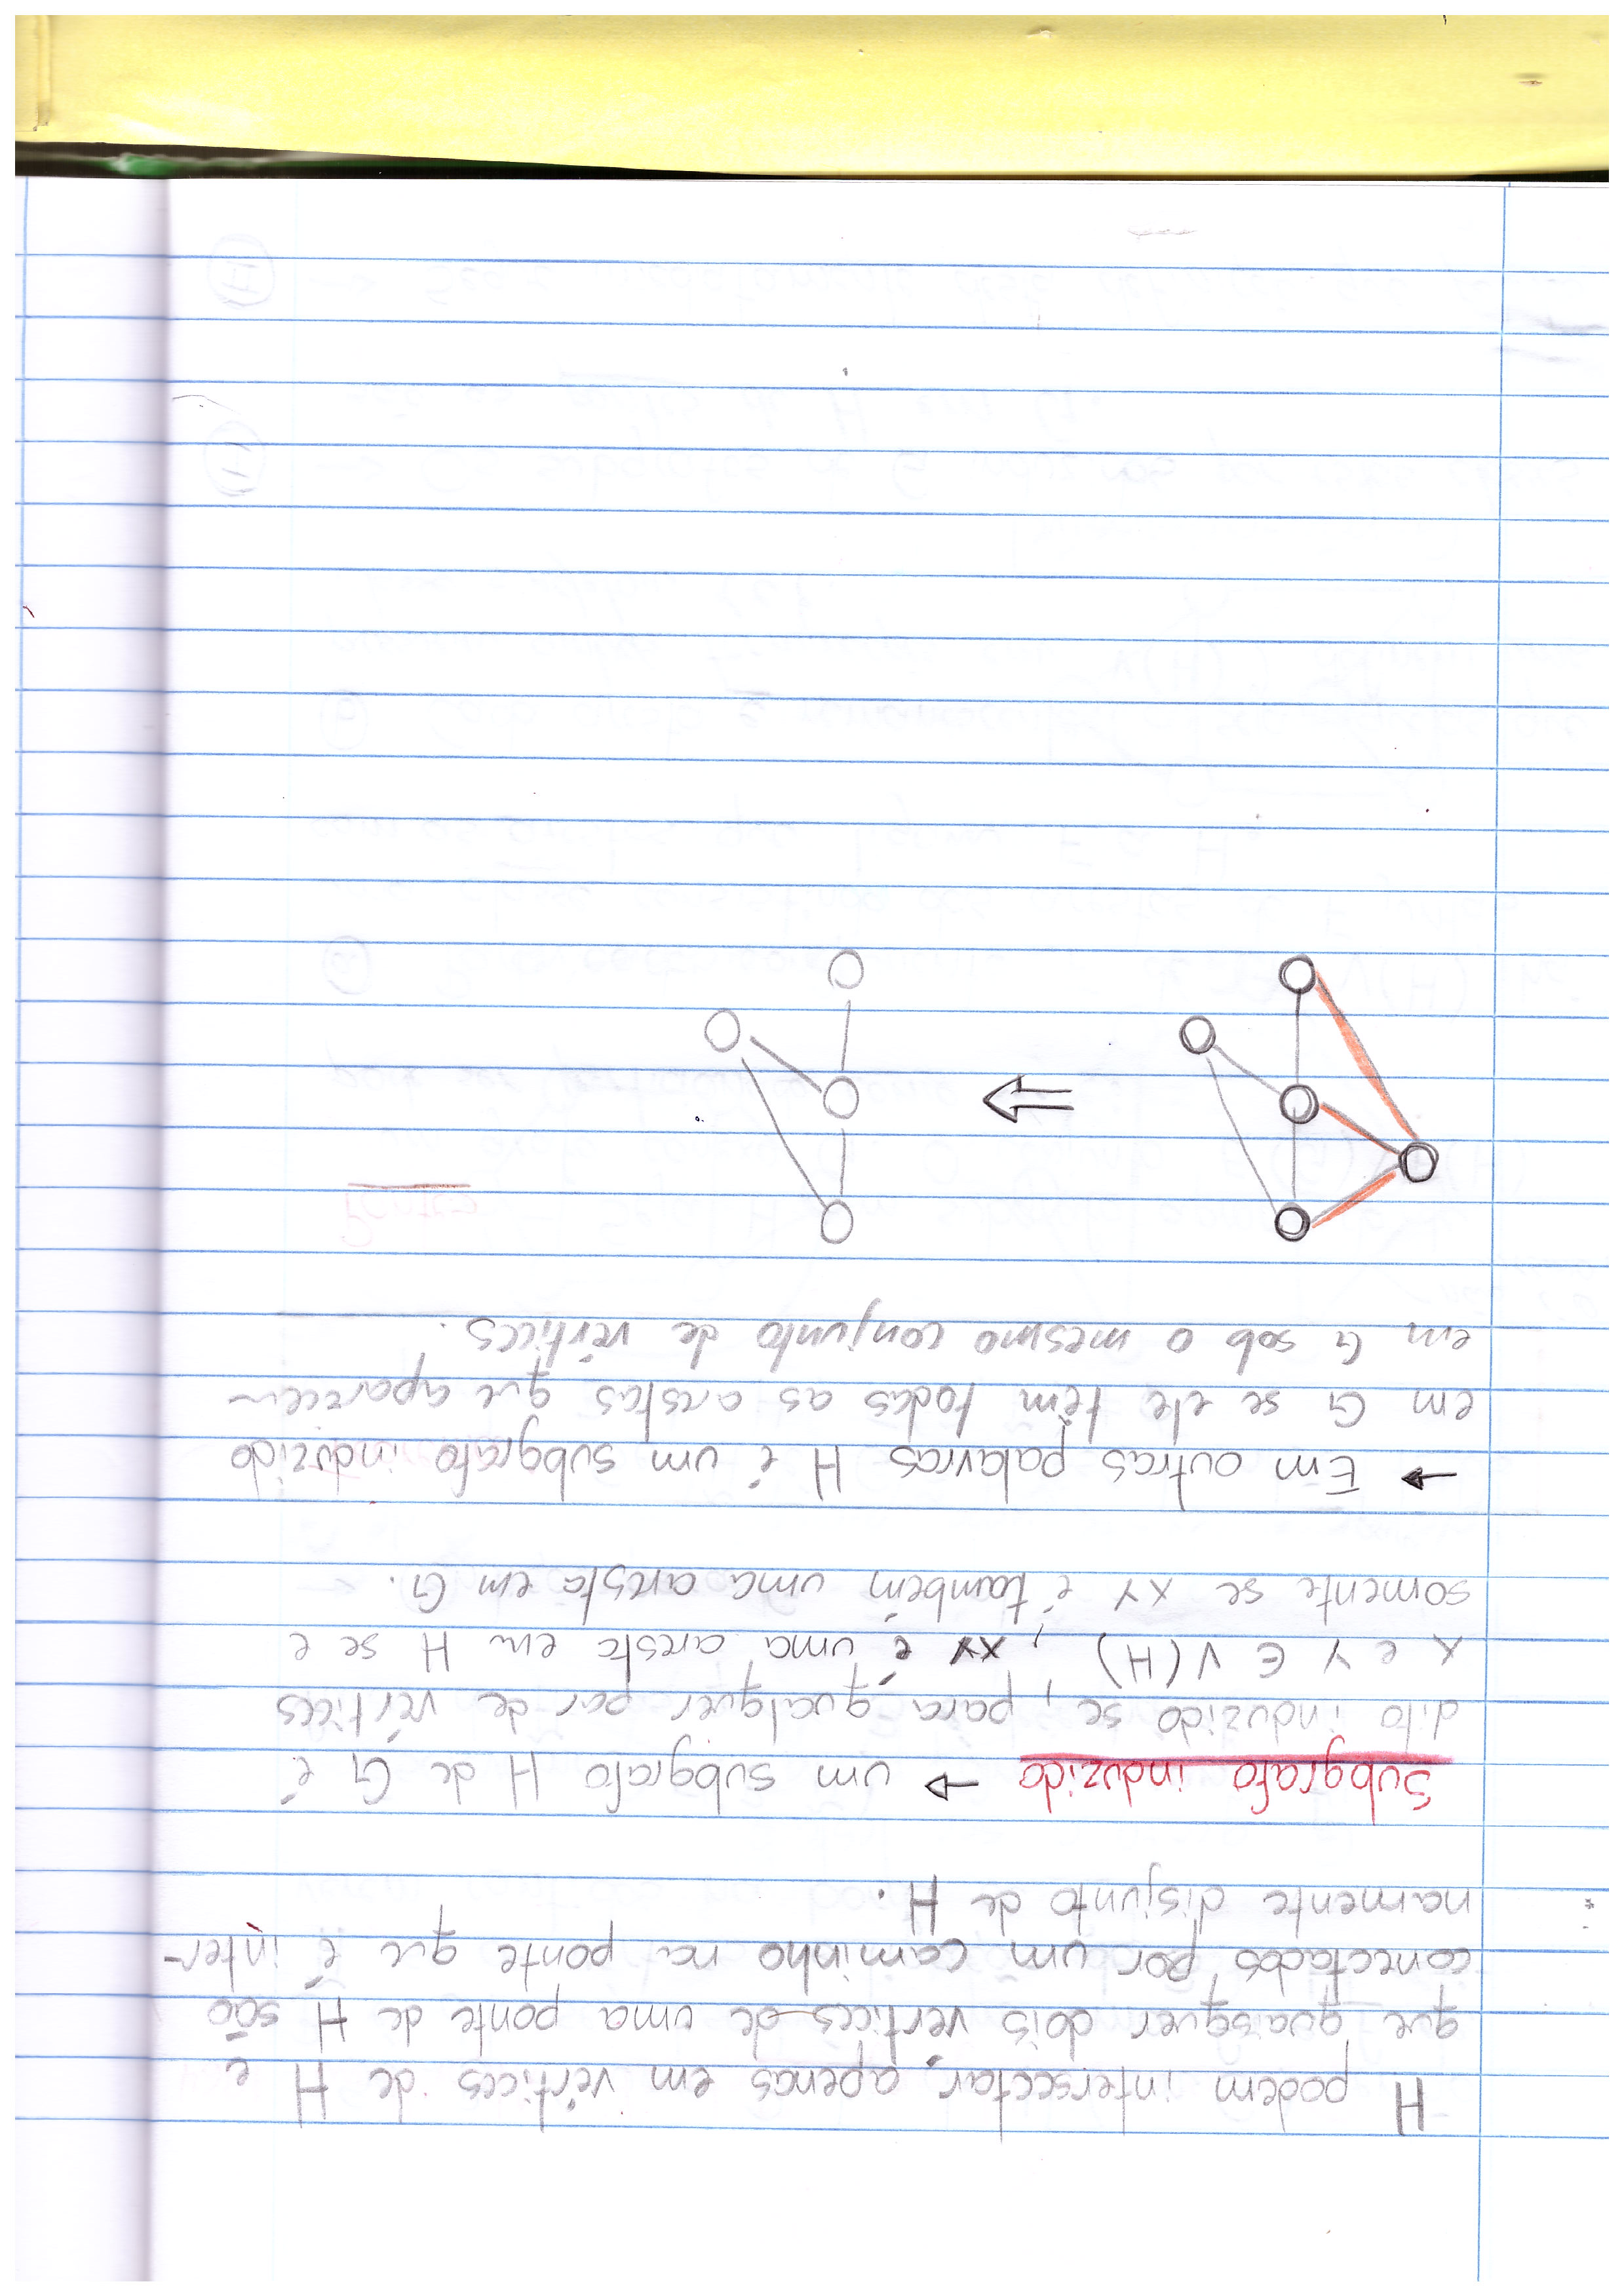 H podem intersectar apenas em vértices de H e
que quaisquer dois vértices de uma ponte de H são
conectados por um caminho na ponte que é inter-
namente disjunto de H.
Subgrafo induzido → um subgrafo H de G é
dito induzido se, para qualquer par de vértices
x e y ∈ V(H), xy é uma aresta em H se e
somente se xy é também uma aresta em G.
→ Em outras palavras H é um subgrafo induzido
em G se ele têm todas as arestas que aparecem
em G sob o mesmo conjunto de vértices.